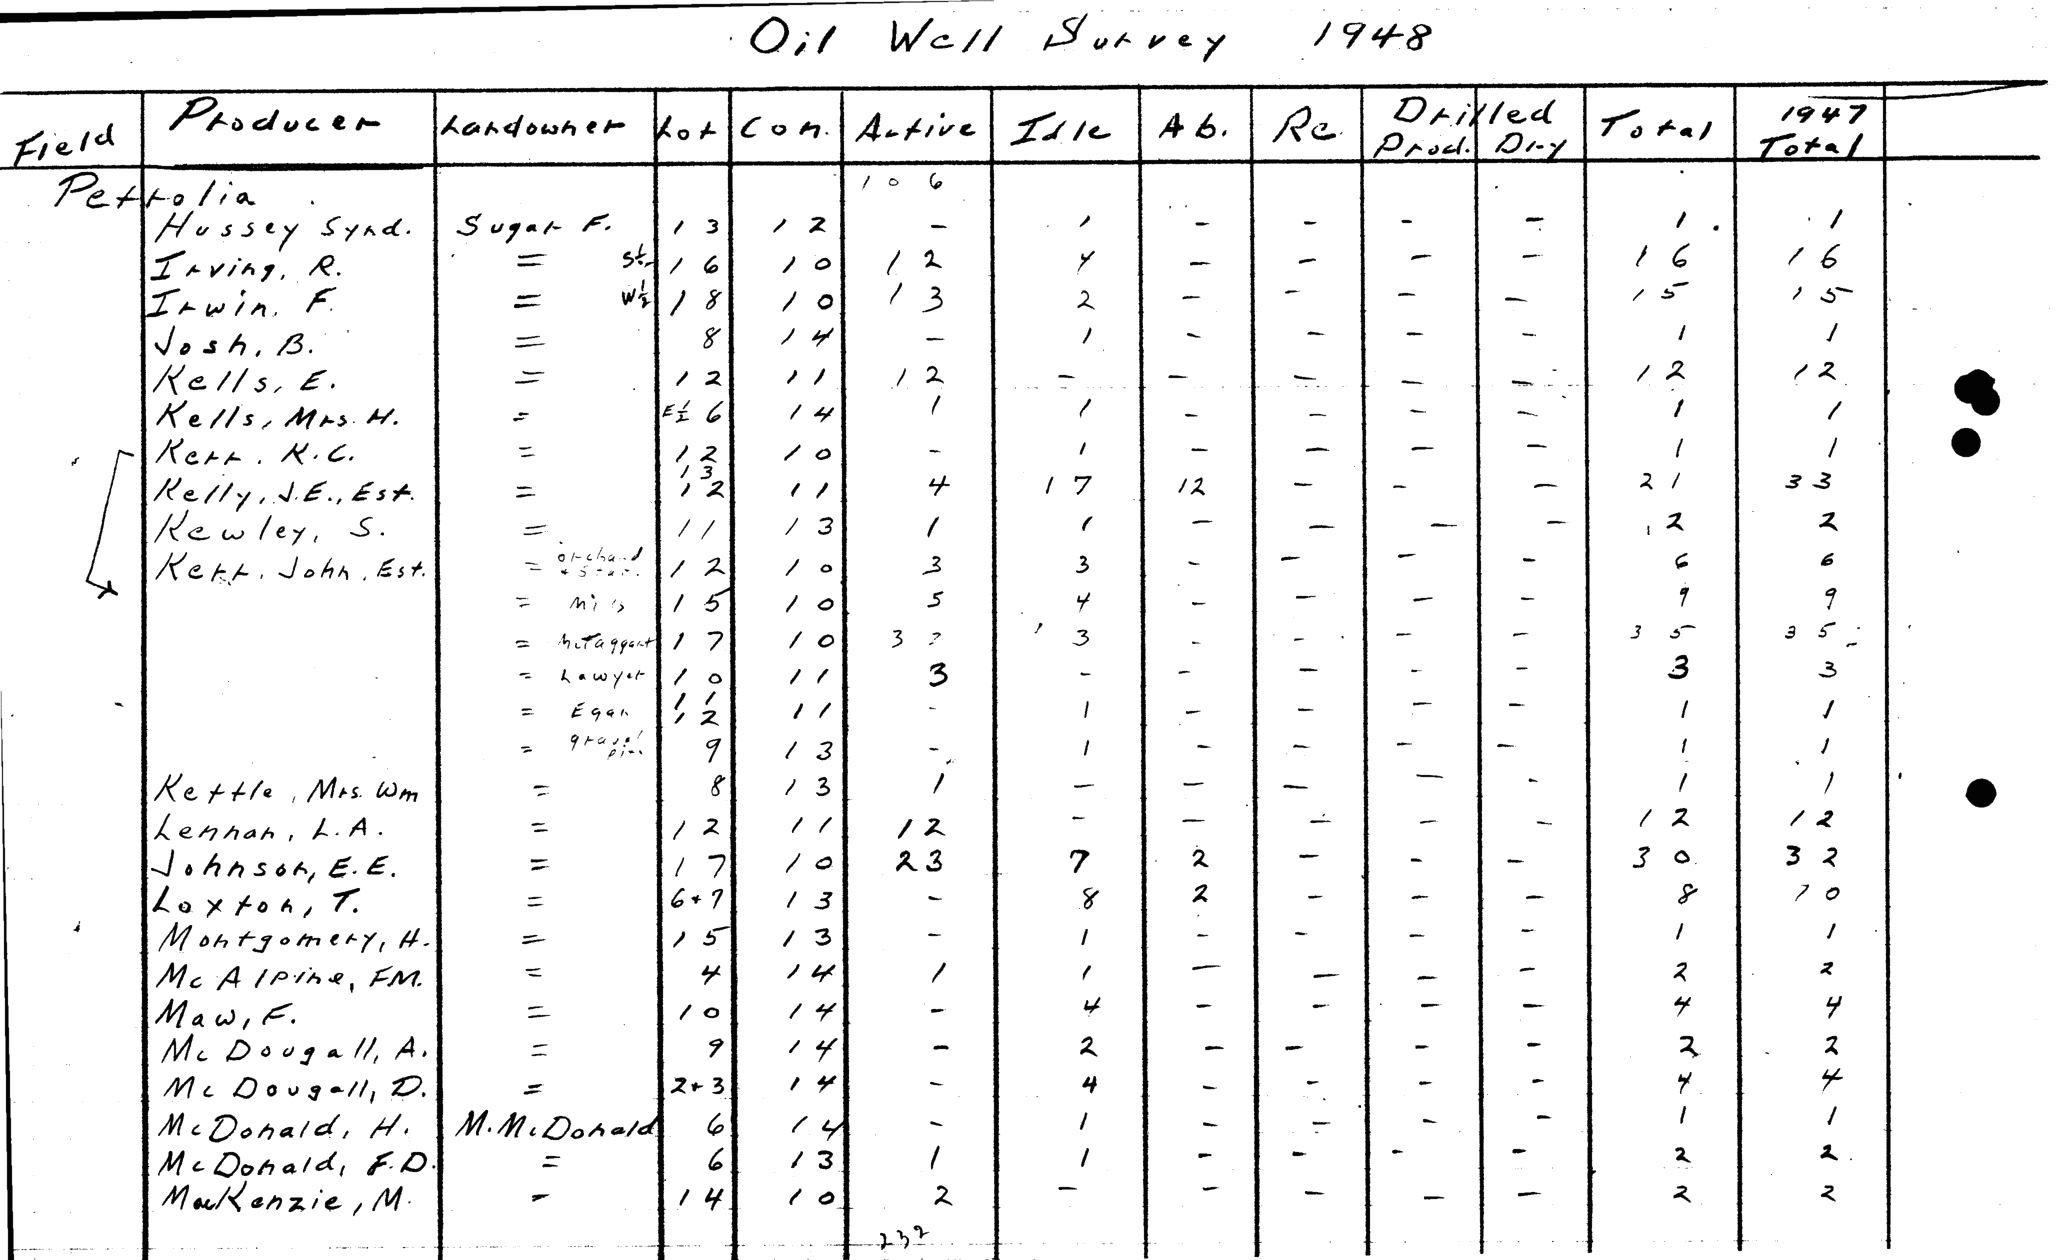 Oil Well Survey 1948
Field Producer Landowner Lot Con. Active Idle Ab. Re. Drilled Prod. Dry Total 1947 Total
Petrolia 106
Hussey Synd. Sugar F. 13 12 - 1 - - - - 1 1
Irving, R. = S½ 16 10 12 4 - - - - 16 16
Irwin, F. = W½ 18 10 13 2 - - - - 15 15
Josh, B. = 8 14 - 1 - - - - 1 1
Kells, E. = 12 11 12 - - - - - 12 12
Kells, Mrs. H. = E½ 6 14 1 1 - - - - 1 1
Kerr, K.C. = 12 10 - 1 - - - - 1 1
Kelly, J.E., Est. = 13 12 11 4 17 12 - - - 21 33
Kewley, S. = 11 13 1 1 - - - - 2 2
Kerr, John, Est. = orchard 12 10 3 3 - - - - 6 6
= 15 10 5 4 - - - - 9 9
= McTaggart 17 10 3 - - - - 35 35
= Lawyer 10 11 3 - - - - - 3 3
= Egan 11 12 11 - 1 - - - - 1 1
= gravel 9 13 - 1 - - - - 1 1
Kettle, Mrs. Wm = 8 13 1 - - - - - 1 1
Lennan, L.A. = 12 11 12 - - - - - 12 12
Johnson, E.E. = 17 10 23 7 2 - - - 30 32
Loxton, T. = 6+7 13 - 8 2 - - - 8 10
Montgomery, H. = 15 13 - 1 - - - - 1 1
McAlpine, F.M. = 4 14 1 1 - - - - 2 2
Maw, F. = 10 14 - 4 - - - - 4 4
McDougall, A. = 9 14 - 2 - - - - 2 2
McDougall, D. = 2+3 14 - 4 - - - - 4 4
McDonald, H. M. McDonald 6 14 - 1 - - - - 1 1
McDonald, F.D. = 6 13 1 1 - - - - 2 2
MacKenzie, M. = 14 10 2 - - - - - 2 2
232